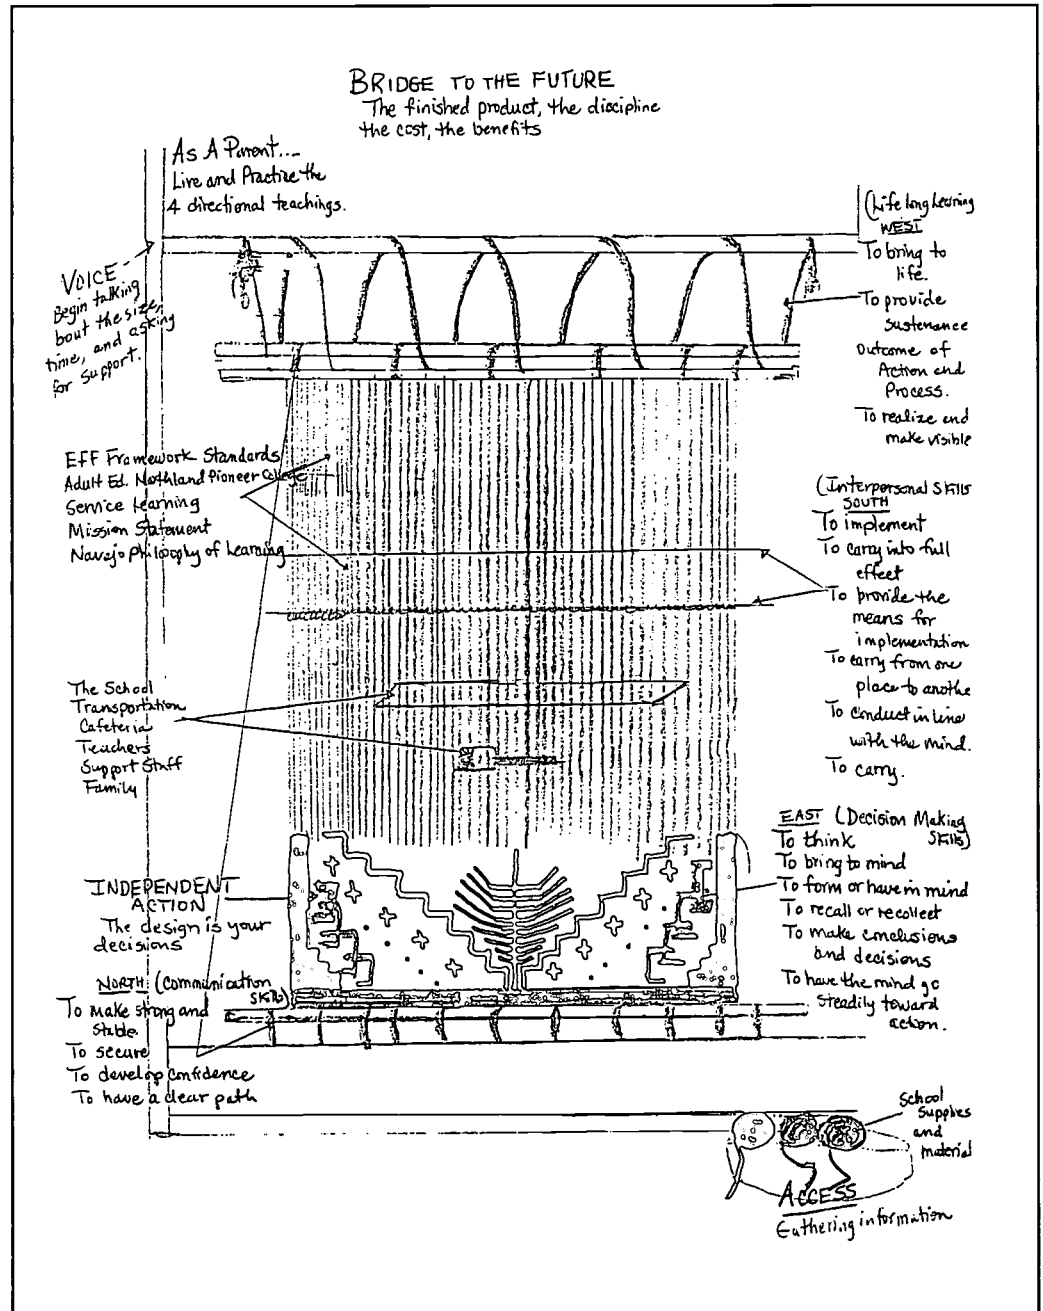 BRIDGE TO THE FUTURE
The finished product, the discipline
the cost, the benefits
As A Parent....
Live and Practice the
4 directional teachings.
VOICE
Begin talking
bout the size,
time, and asking
for support.
(Life long Learning
WEST
To bring to
life.
To provide
sustenance
Outcome of
Action and
Process.
To realize and
make visible
EFF Framework Standards
Adult Ed. Northland Pioneer College
Service Learning
Mission Statement
Navajo Philosophy of Learning
(Interpersonal Skills
SOUTH
To implement
To carry into full
effect
To provide the
means for
implementation
To carry from one
place to anothe
To conduct in line
with the mind.
To carry.
The School
Transportation
Cafeteria
Teachers
Support Staff
Family
EAST (Decision Making
Skills)
To think
To bring to mind
To form or have in mind
To recall or recollect
To make conclusions
and decisions
To have the mind go
steadily toward
action.
INDEPENDENT
ACTION
The design is your
decisions
NORTH (Communication
Skills)
To make strong and
stable
To secure
To develop confidence
To have a clear path
School
Supplies
and
material
ACCESS
Gathering information